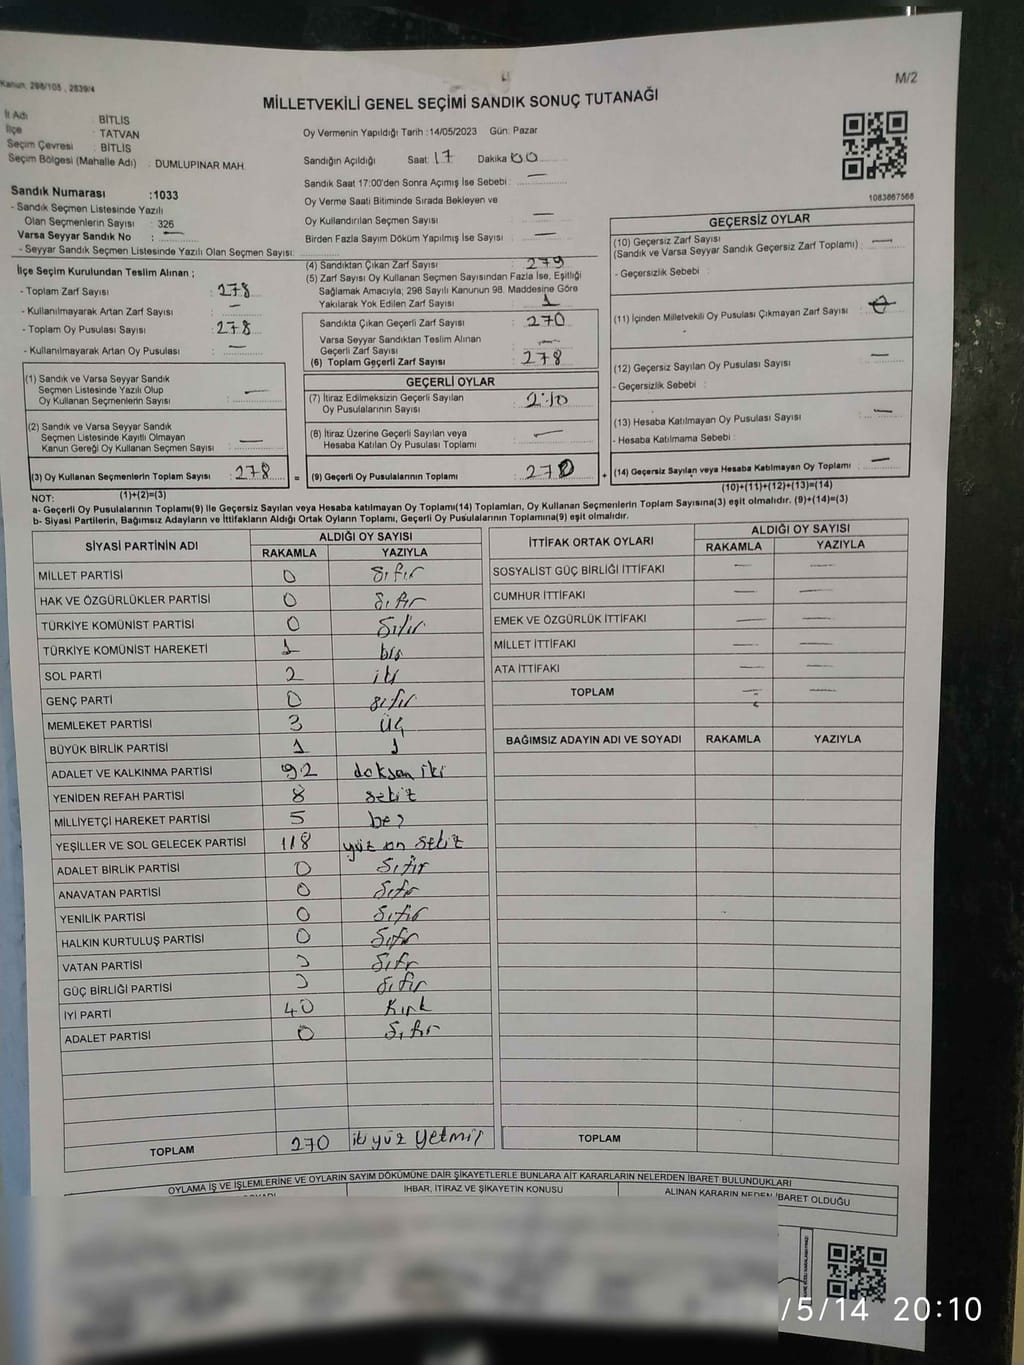 Kanun: 298/105 , 2839/4
M/2
MİLLETVEKİLİ GENEL SEÇİMİ SANDIK SONUÇ TUTANAĞI
İl Adı : BİTLİS
İlçe : TATVAN
Seçim Çevresi : BİTLİS
Seçim Bölgesi (Mahalle Adı) : DUMLUPINAR MAH.
Oy Vermenin Yapıldığı Tarih :14/05/2023 Gün: Pazar
Sandığın Açıldığı Saat: 17 Dakika 00
Sandık Saat 17:00'den Sonra Açımış İse Sebebi : —
Oy Verme Saati Bitiminde Sırada Bekleyen ve
Oy Kullandırılan Seçmen Sayısı —
Birden Fazla Sayım Döküm Yapılmış İse Sayısı : —
1083667568
Sandık Numarası :1033
- Sandık Seçmen Listesinde Yazılı
Olan Seçmenlerin Sayısı : 326
Varsa Seyyar Sandık No : —
- Seyyar Sandık Seçmen Listesinde Yazılı Olan Seçmen Sayısı:
İlçe Seçim Kurulundan Teslim Alınan ;
- Toplam Zarf Sayısı : 278
- Kullanılmayarak Artan Zarf Sayısı : —
- Toplam Oy Pusulası Sayısı : 278
- Kullanılmayarak Artan Oy Pusulası : —
(1) Sandık ve Varsa Seyyar Sandık
Seçmen Listesinde Yazılı Olup
Oy Kullanan Seçmenlerin Sayısı : —
(2) Sandık ve Varsa Seyyar Sandık
Seçmen Listesinde Kayıtlı Olmayan
Kanun Gereği Oy Kullanan Seçmen Sayısı : —
(3) Oy Kullanan Seçmenlerin Toplam Sayısı : 278
(4) Sandıktan Çıkan Zarf Sayısı : 279
(5) Zarf Sayısı Oy Kullanan Seçmen Sayısından Fazla İse, Eşitliği
Sağlamak Amacıyla; 298 Sayılı Kanunun 98. Maddesine Göre
Yakılarak Yok Edilen Zarf Sayısı : 1
Sandıkta Çıkan Geçerli Zarf Sayısı : 270
Varsa Seyyar Sandıktan Teslim Alınan
Geçerli Zarf Sayısı : —
(6) Toplam Geçerli Zarf Sayısı : 278
GEÇERLİ OYLAR
(7) İtiraz Edilmeksizin Geçerli Sayılan
Oy Pusulalarının Sayısı : 270
(8) İtiraz Üzerine Geçerli Sayılan veya
Hesaba Katılan Oy Pusulası Toplamı : —
= (9) Geçerli Oy Pusulalarının Toplamı : 270
GEÇERSİZ OYLAR
(10) Geçersiz Zarf Sayısı
(Sandık ve Varsa Seyyar Sandık Geçersiz Zarf Toplamı) : —
- Geçersizlik Sebebi :
(11) İçinden Milletvekili Oy Pusulası Çıkmayan Zarf Sayısı :
(12) Geçersiz Sayılan Oy Pusulası Sayısı : —
- Geçersizlik Sebebi :
(13) Hesaba Katılmayan Oy Pusulası Sayısı : —
- Hesaba Katılmama Sebebi :
+ (14) Geçersiz Sayılan veya Hesaba Katılmayan Oy Toplamı : —
NOT: (1)+(2)=(3)
(10)+(11)+(12)+(13)=(14)
a- Geçerli Oy Pusulalarının Toplamı(9) ile Geçersiz Sayılan veya Hesaba katılmayan Oy Toplamı(14) Toplamları, Oy Kullanan Seçmenlerin Toplam Sayısına(3) eşit olmalıdır. (9)+(14)=(3)
b- Siyasi Partilerin, Bağımsız Adayların ve İttifakların Aldığı Ortak Oyların Toplamı, Geçerli Oy Pusulalarının Toplamına(9) eşit olmalıdır.
SİYASİ PARTİNİN ADI ALDIĞI OY SAYISI
RAKAMLA YAZIYLA
MİLLET PARTİSİ 0 sıfır
HAK VE ÖZGÜRLÜKLER PARTİSİ 0 sıfır
TÜRKİYE KOMÜNİST PARTİSİ 0 sıfır
TÜRKİYE KOMÜNİST HAREKETİ 1 bir
SOL PARTİ 2 iki
GENÇ PARTİ 0 sıfır
MEMLEKET PARTİSİ 3 üç
BÜYÜK BİRLİK PARTİSİ 1 1
ADALET VE KALKINMA PARTİSİ 92 doksan iki
YENİDEN REFAH PARTİSİ 8 sekiz
MİLLİYETÇİ HAREKET PARTİSİ 5 beş
YEŞİLLER VE SOL GELECEK PARTİSİ 118 yüz on sekiz
ADALET BİRLİK PARTİSİ 0 sıfır
ANAVATAN PARTİSİ 0 sıfır
YENİLİK PARTİSİ 0 sıfır
HALKIN KURTULUŞ PARTİSİ 0 sıfır
VATAN PARTİSİ 0 sıfır
GÜÇ BİRLİĞİ PARTİSİ 0 sıfır
İYİ PARTİ 40 kırk
ADALET PARTİSİ 0 sıfır
TOPLAM 270 iki yüz yetmiş
İTTİFAK ORTAK OYLARI ALDIĞI OY SAYISI
RAKAMLA YAZIYLA
SOSYALİST GÜÇ BİRLİĞİ İTTİFAKI — —
CUMHUR İTTİFAKI — —
EMEK VE ÖZGÜRLÜK İTTİFAKI — —
MİLLET İTTİFAKI — —
ATA İTTİFAKI — —
TOPLAM — —
BAĞIMSIZ ADAYIN ADI VE SOYADI RAKAMLA YAZIYLA
TOPLAM
OYLAMA İŞ VE İŞLEMLERİNE VE OYLARIN SAYIM DÖKÜMÜNE DAİR ŞİKAYETLERLE BUNLARA AİT KARARLARIN NELERDEN İBARET BULUNDUKLARI
İHBAR, İTİRAZ VE ŞİKAYETİN KONUSU
ALINAN KARARIN NEDEN İBARET OLDUĞU
/5/14 20:10